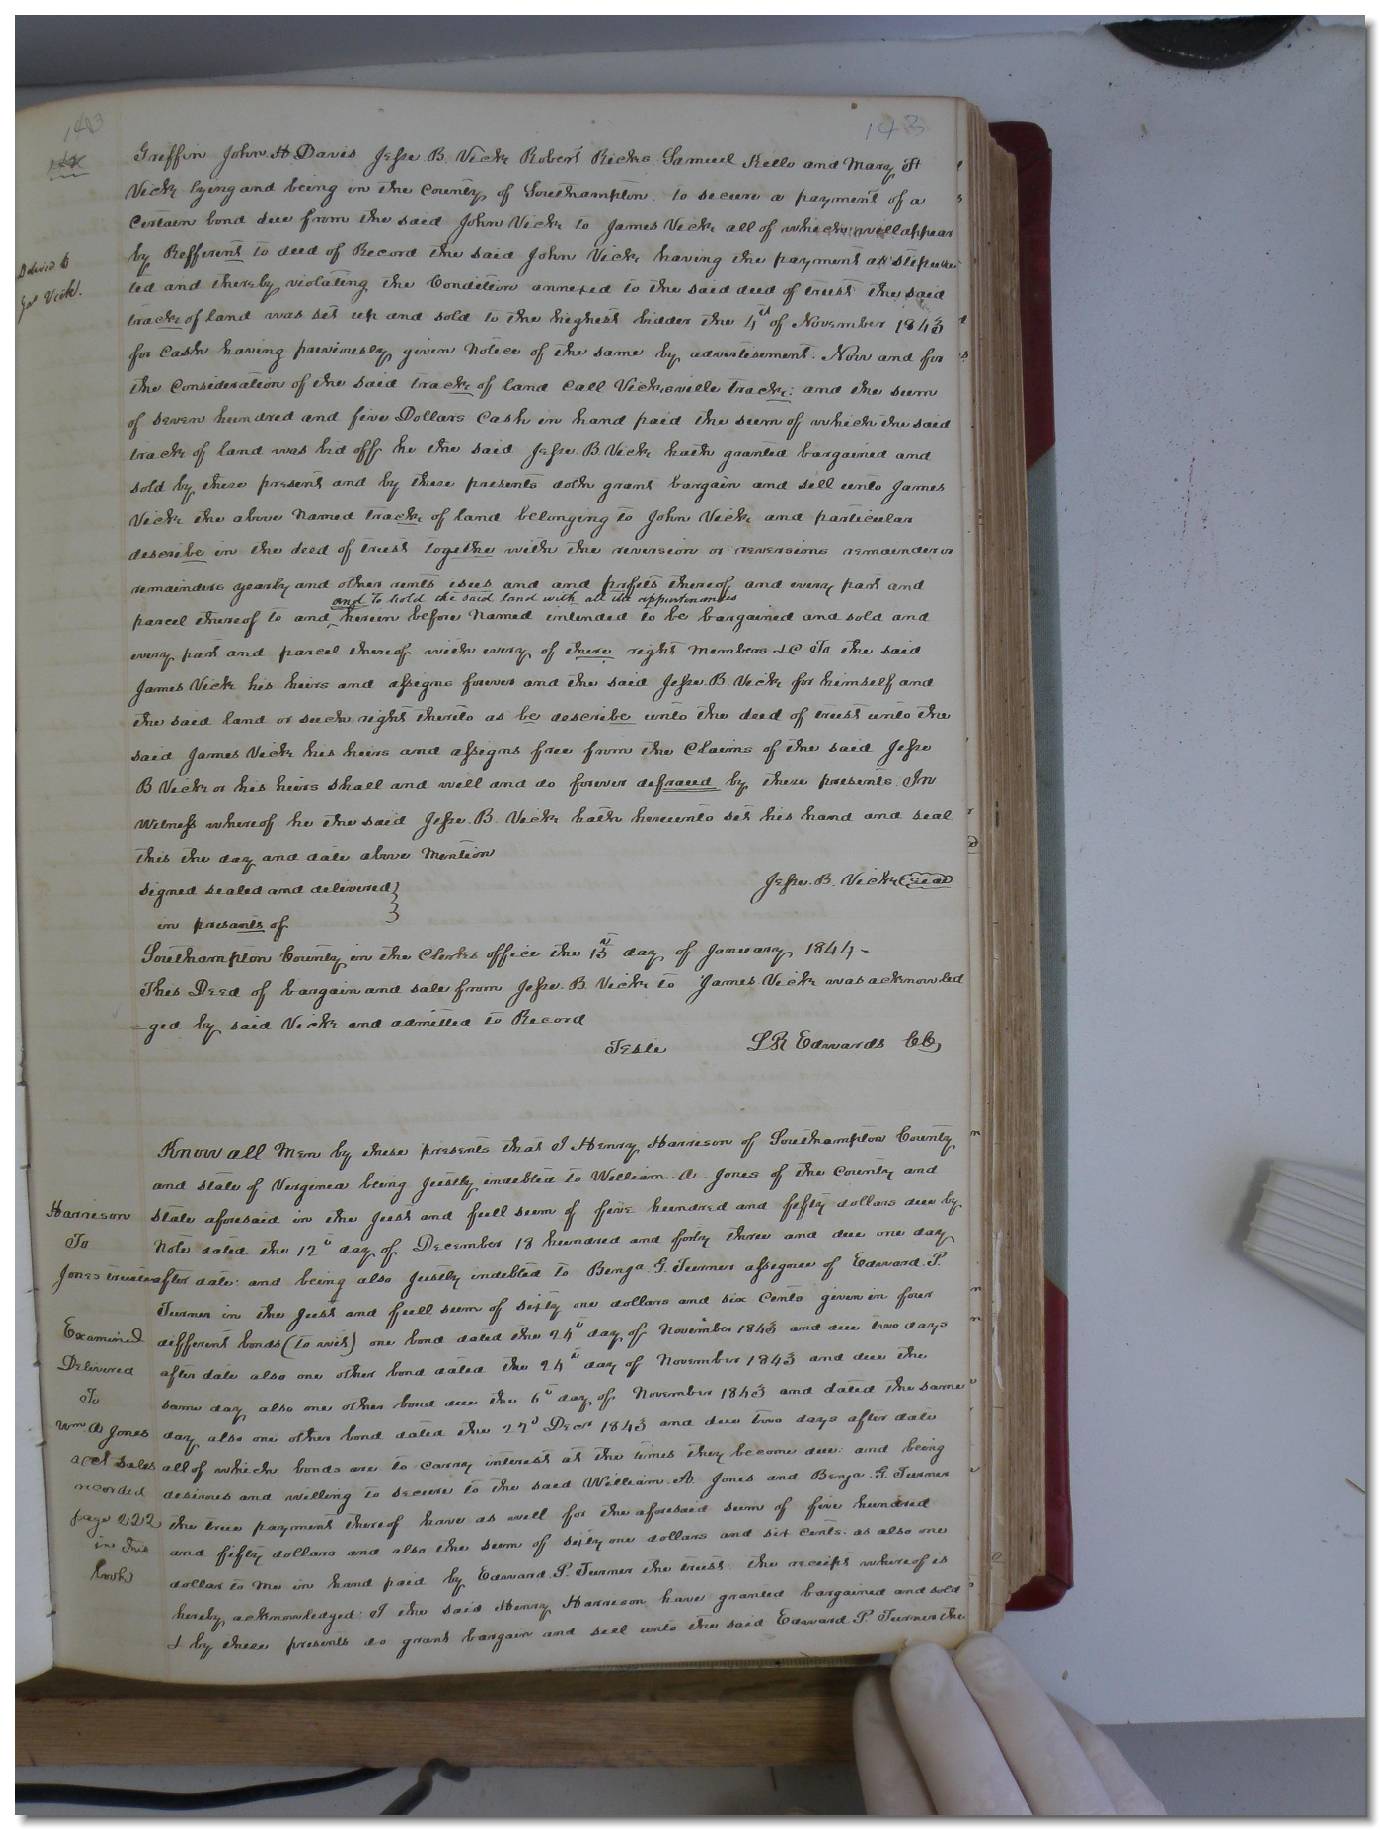 143
143
Griffin John H Davis Jesse B. Vick Robert Ricks Samuel Kello and Mary H
Vick lying and being in the County of Southampton to secure a payment of a
Certain bond due from the said John Vick to James Vick all of which will appear
by Refferent to deed of Record the said John Vick having the payment as stipula
ted and thereby violating the Condition annexed to the said deed of trust the said
Jas Vick.
tracke of land was set up and sold to the highest bidder the 4th of November 1843
for Cash having previously given Notice of the same by advertisement. Now and for
the Consideration of the said tracke of land Call Vicksville tracke: and the sum
of seven hundred and five Dollars Cash in hand paid the sum of which the said
tracke of land was bid off he the said Jesse B. Vick hath granted bargained and
sold by these present and by these presents doth grant bargain and sell unto James
Vick the above Named tracke of land belonging to John Vick and particular
describe in the deed of trust togethe with the reversion or reversions remainder or
remainders yearly and other rents isues and and profits thereof and every part and
and To hold the said land with all the appurtenances
parcel thereof to and herein before Named intended to be bargained and sold and
every part and parcel thereof with every of there right Members &C To the said
James Vick his heirs and assigns forever and the said Jesse B Vick for himself and
the said land or such right thereto as be describe unto the deed of trust unto the
said James Vick his heirs and assigns free from the Claims of the said Jesse
B Vick or his heirs shall and will and do forever defraud by these presents. In
Witness whereof he the said Jesse B. Vick hath hereunto set his hand and seal
this the day and date above Mention
signed sealed and delivered } Jesse. B. Vick (seal)
in presants of
Southampton County in the Clerks office the 15th day of January 1844 -
This Deed of bargain and sale from Jesse B. Vick to James Vick was acknowled
-ged by said Vick and admitted to Record
Teste L R Edwards CC
Know all Men by these presents that I Henry Harrison of Southampton County
and state of Verginea being Justly indebted to William A Jones of the County and
Harrison
state aforesaid in the Just and full sum of five hundred and fifty dollars due by
To
Note dated the 12th day of December 18 hundred and forty three and due one day
Jones trustee
after date: and being also Justly indebted to Benja. G. Turner assignee of Edward. P.
Turner in the Just and full sum of sixty one dollars and six Cents given in four
Examined
different bonds (to wit) one bond dated the 24th day of November 1843 and due two days
Delivered
after date also one other bond dated the 24th day of November 1843 and due the
To
same day also one other bond due the 6th day of November 1843 and dated the same
Wm A Jones
day also one other bond dated the 27th Decr 1843 and due two days after date
act sales
all of which bonds are to carry interest at the times they become due: and being
recorded
desirous and willing to secure to the said William A. Jones and Benja G. Turner
page 222
the true payment thereof have as well for the aforesaid sum of five hundred
in this
and fifty dollars and also the sum of sixty one dollars and six cents. as also one
book
dollar to me in hand paid by Edward P. Turner the trust. the receipt whereof is
hereby acknowledged: I the said Henry Harrison have granted bargained and sold
& by these presents do grant bargain and sell unto the said Edward P. Turner the